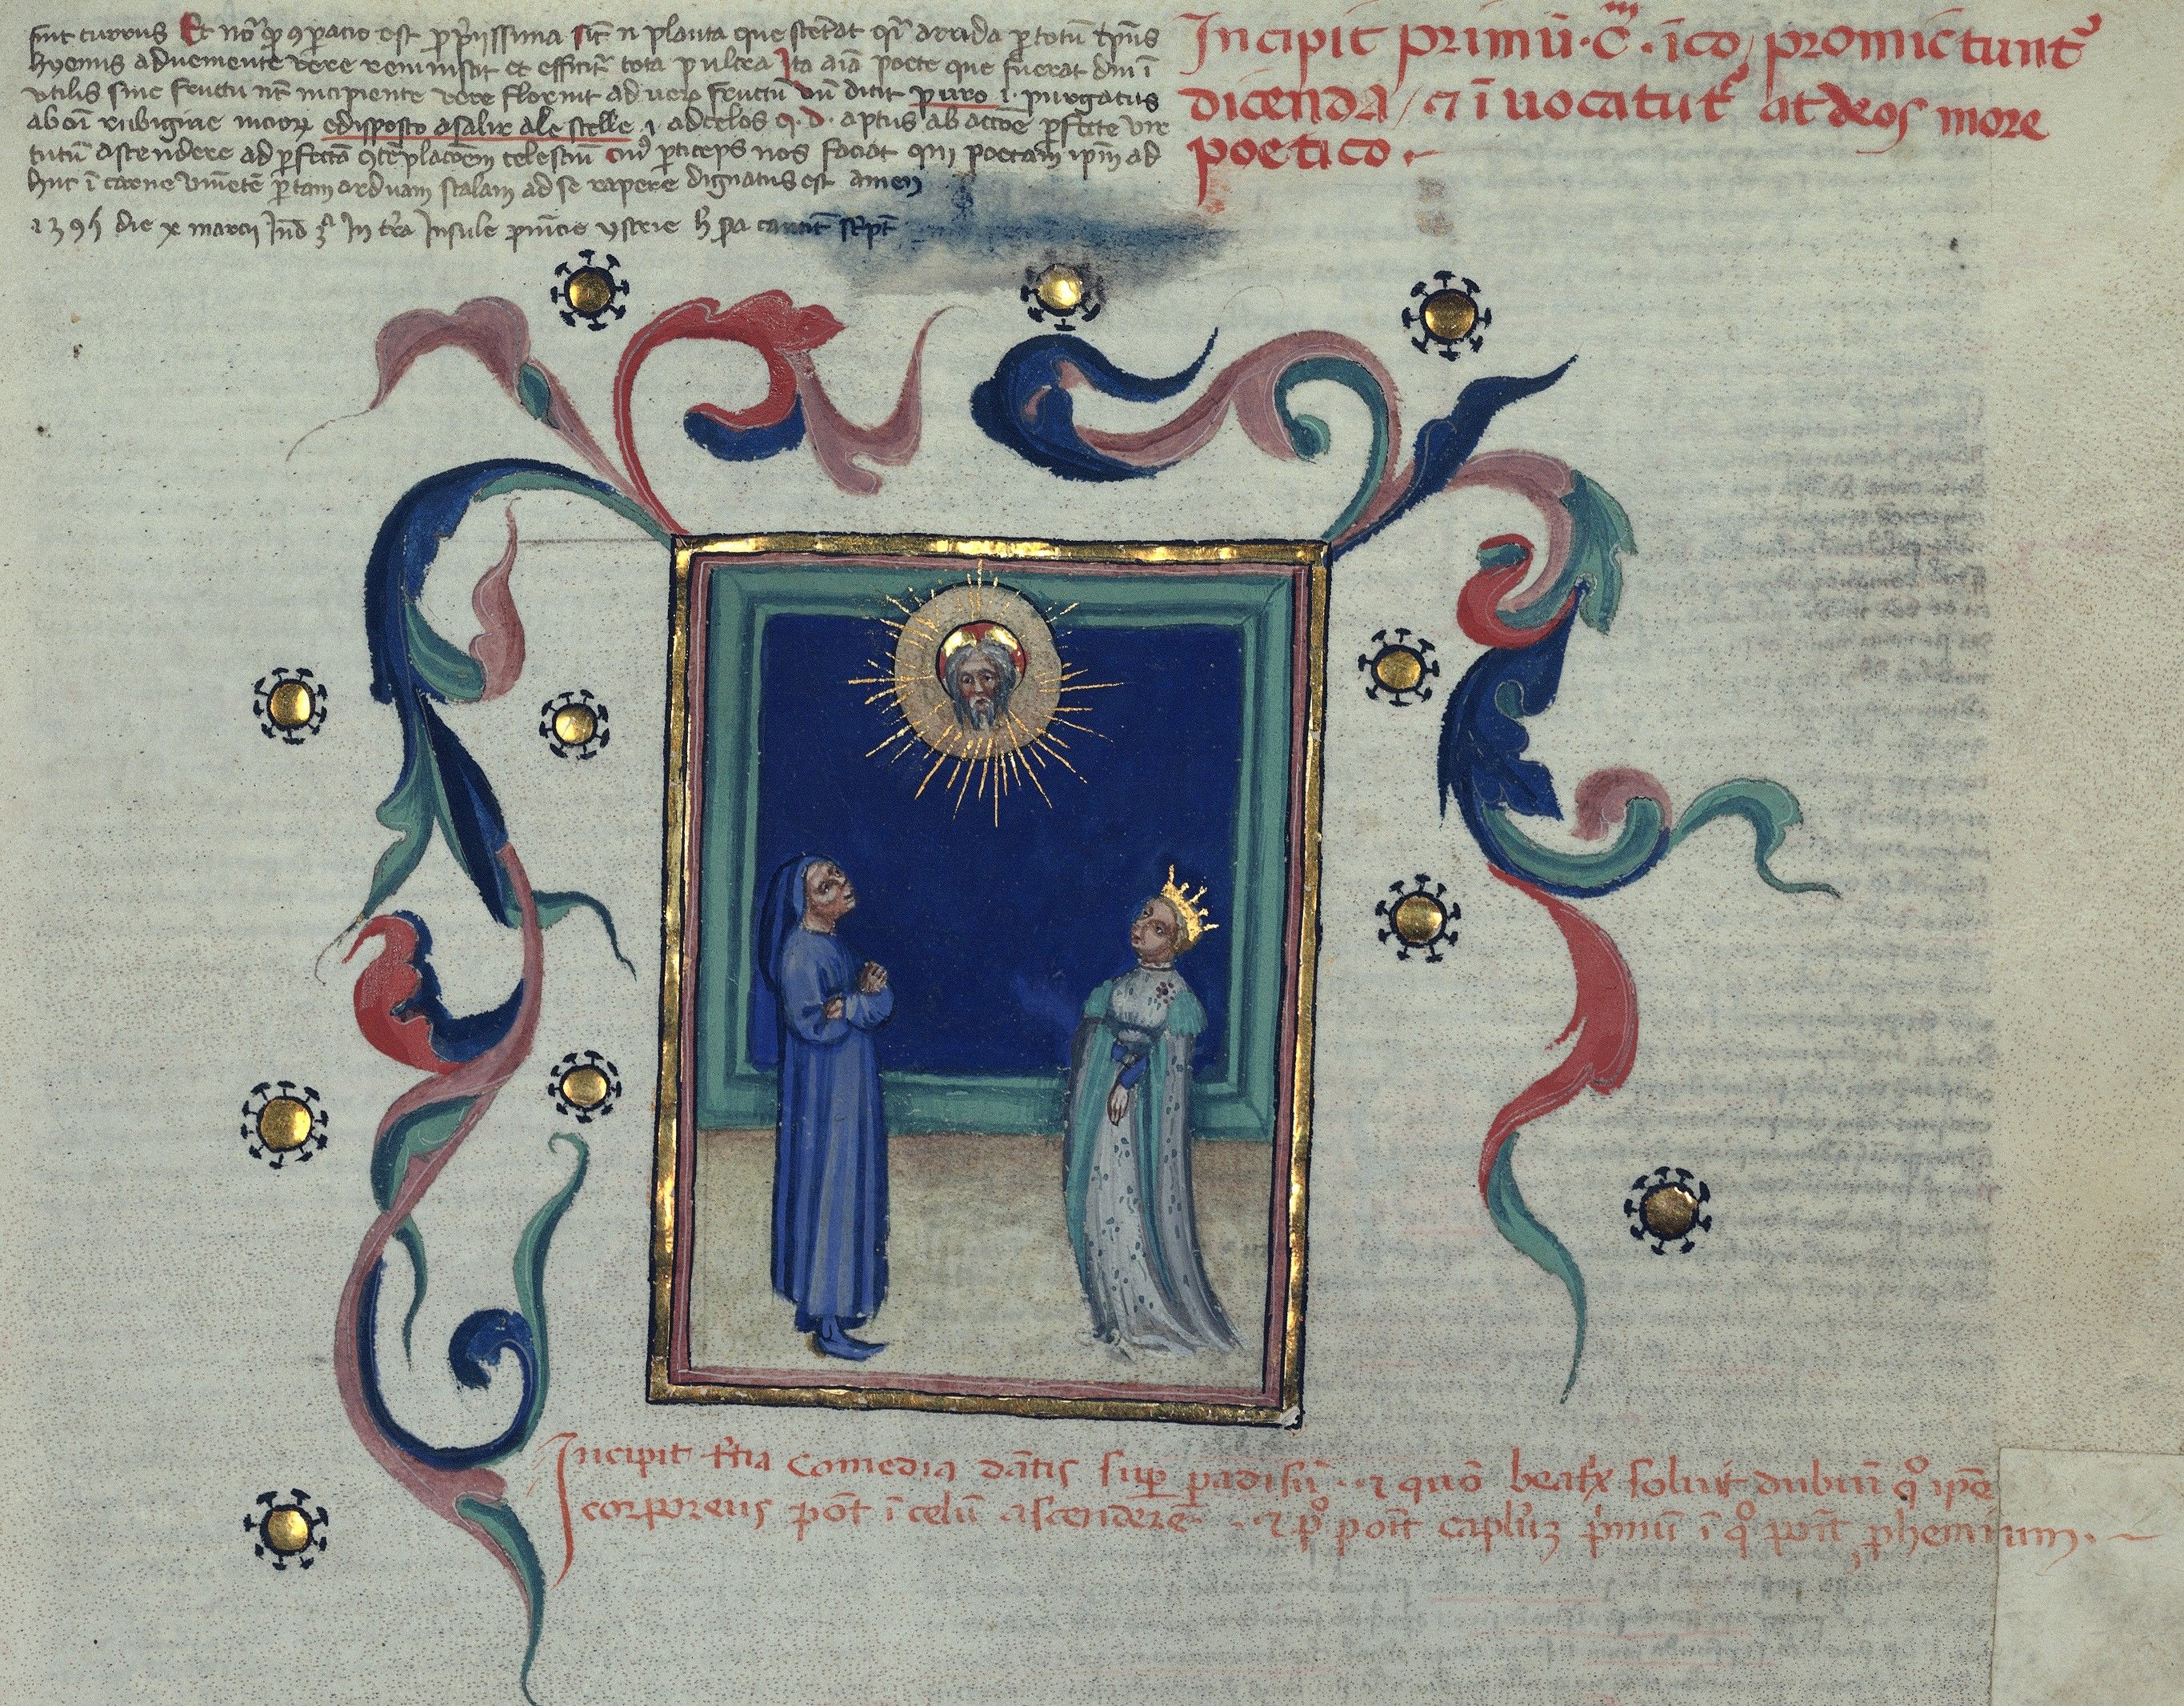 sunt currus Et nō̄ ꝙ ꝯꝑacio est ꝓpijssima sic̄ n̄ planta que stetat qͣ̄ⁱ arida ꝑ totū tp̄us
hyemis adueniente vere reminiscit et efficit᷑ tota pulcra Ita aīa poete que fuerat
vtilis sine fructu incipiente vere floruit ad uerū fructū vn̄ dicit puro .i. purgatus
ab oī rubigine edisposto asalir ale stelle .i. ad celos q. d. aptus ab acc̄oe ꝑfecte vir
tutū ascendere ad ꝑfectā ꝯteplac̄oem celestiū cuiꝰ ꝑticeps nos faciat qui poetam ip̄m ad
huc ī carne viuētē ꝑ tam arduam scalam ad se rapere dignatus est amen
die x marcij Ind̄ 3ᵃ In tr̄a Insule ꝓuīcie ystrie
Incipit primū · cᵐ · ī co promictunt᷑
dicenda / ⁊ ī uocatur at deos more
poetico .
Incipit tᵉtia Comedia dātis suꝑ ꝑadisū . ⁊ quō beatx̄ soluit dubiū qͦ ipē
corporeus pōt ī celū ascendere . ⁊ pͦ poīt capl̄ꝫ pⁱmū ī qͦ poīt ꝓhemium .